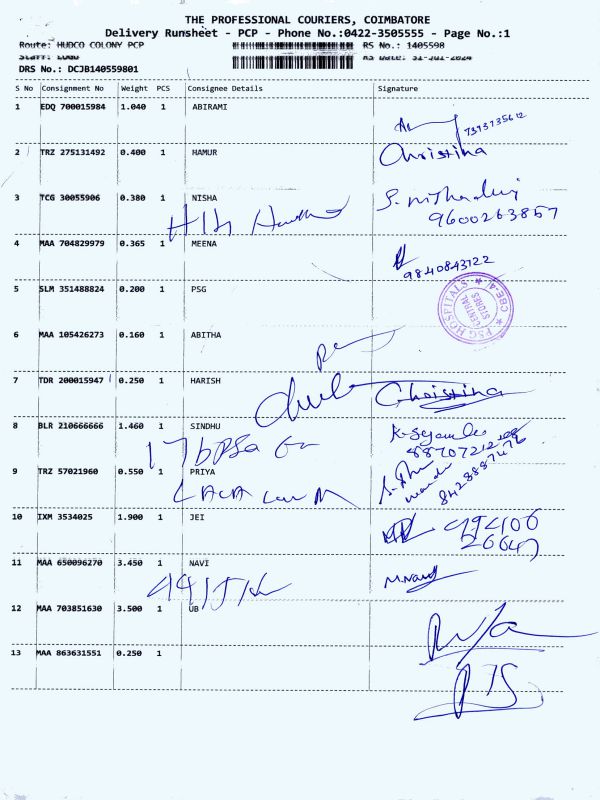 THE PROFESSIONAL COURIERS, COIMBATORE
Delivery Runsheet - PCP - Phone No.:0422-3505555 - Page No.:1
Route: HUDCO COLONY PCP RS No.: 1405598
RS Date: 31-Jul-2024
DRS No.: DCJB140559801
S No Consignment No Weight PCS Consignee Details Signature
1 EDQ 700015984 1.040 1 ABIRAMI
7373735612
2 TRZ 275131492 0.400 1 HAMUR Christina
3 TCG 30055906 0.380 1 NISHA
9600263857
4 MAA 704829979 0.365 1 MEENA
9840843122
5 SLM 351488824 0.200 1 PSG
PSG HOSPITALS CBE-4
CENTRAL STORES
6 MAA 105426273 0.160 1 ABITHA
7 TDR 200015947 1 0.250 1 HARISH Christina
8 BLR 210666666 1.460 1 SINDHU
9 TRZ 57021960 0.550 1 PRIYA
8428887476
10 IXM 3534025 1.900 1 JEI
11 MAA 650096270 3.450 1 NAVI
12 MAA 703851630 3.500 1 UB
13 MAA 863631551 0.250 1